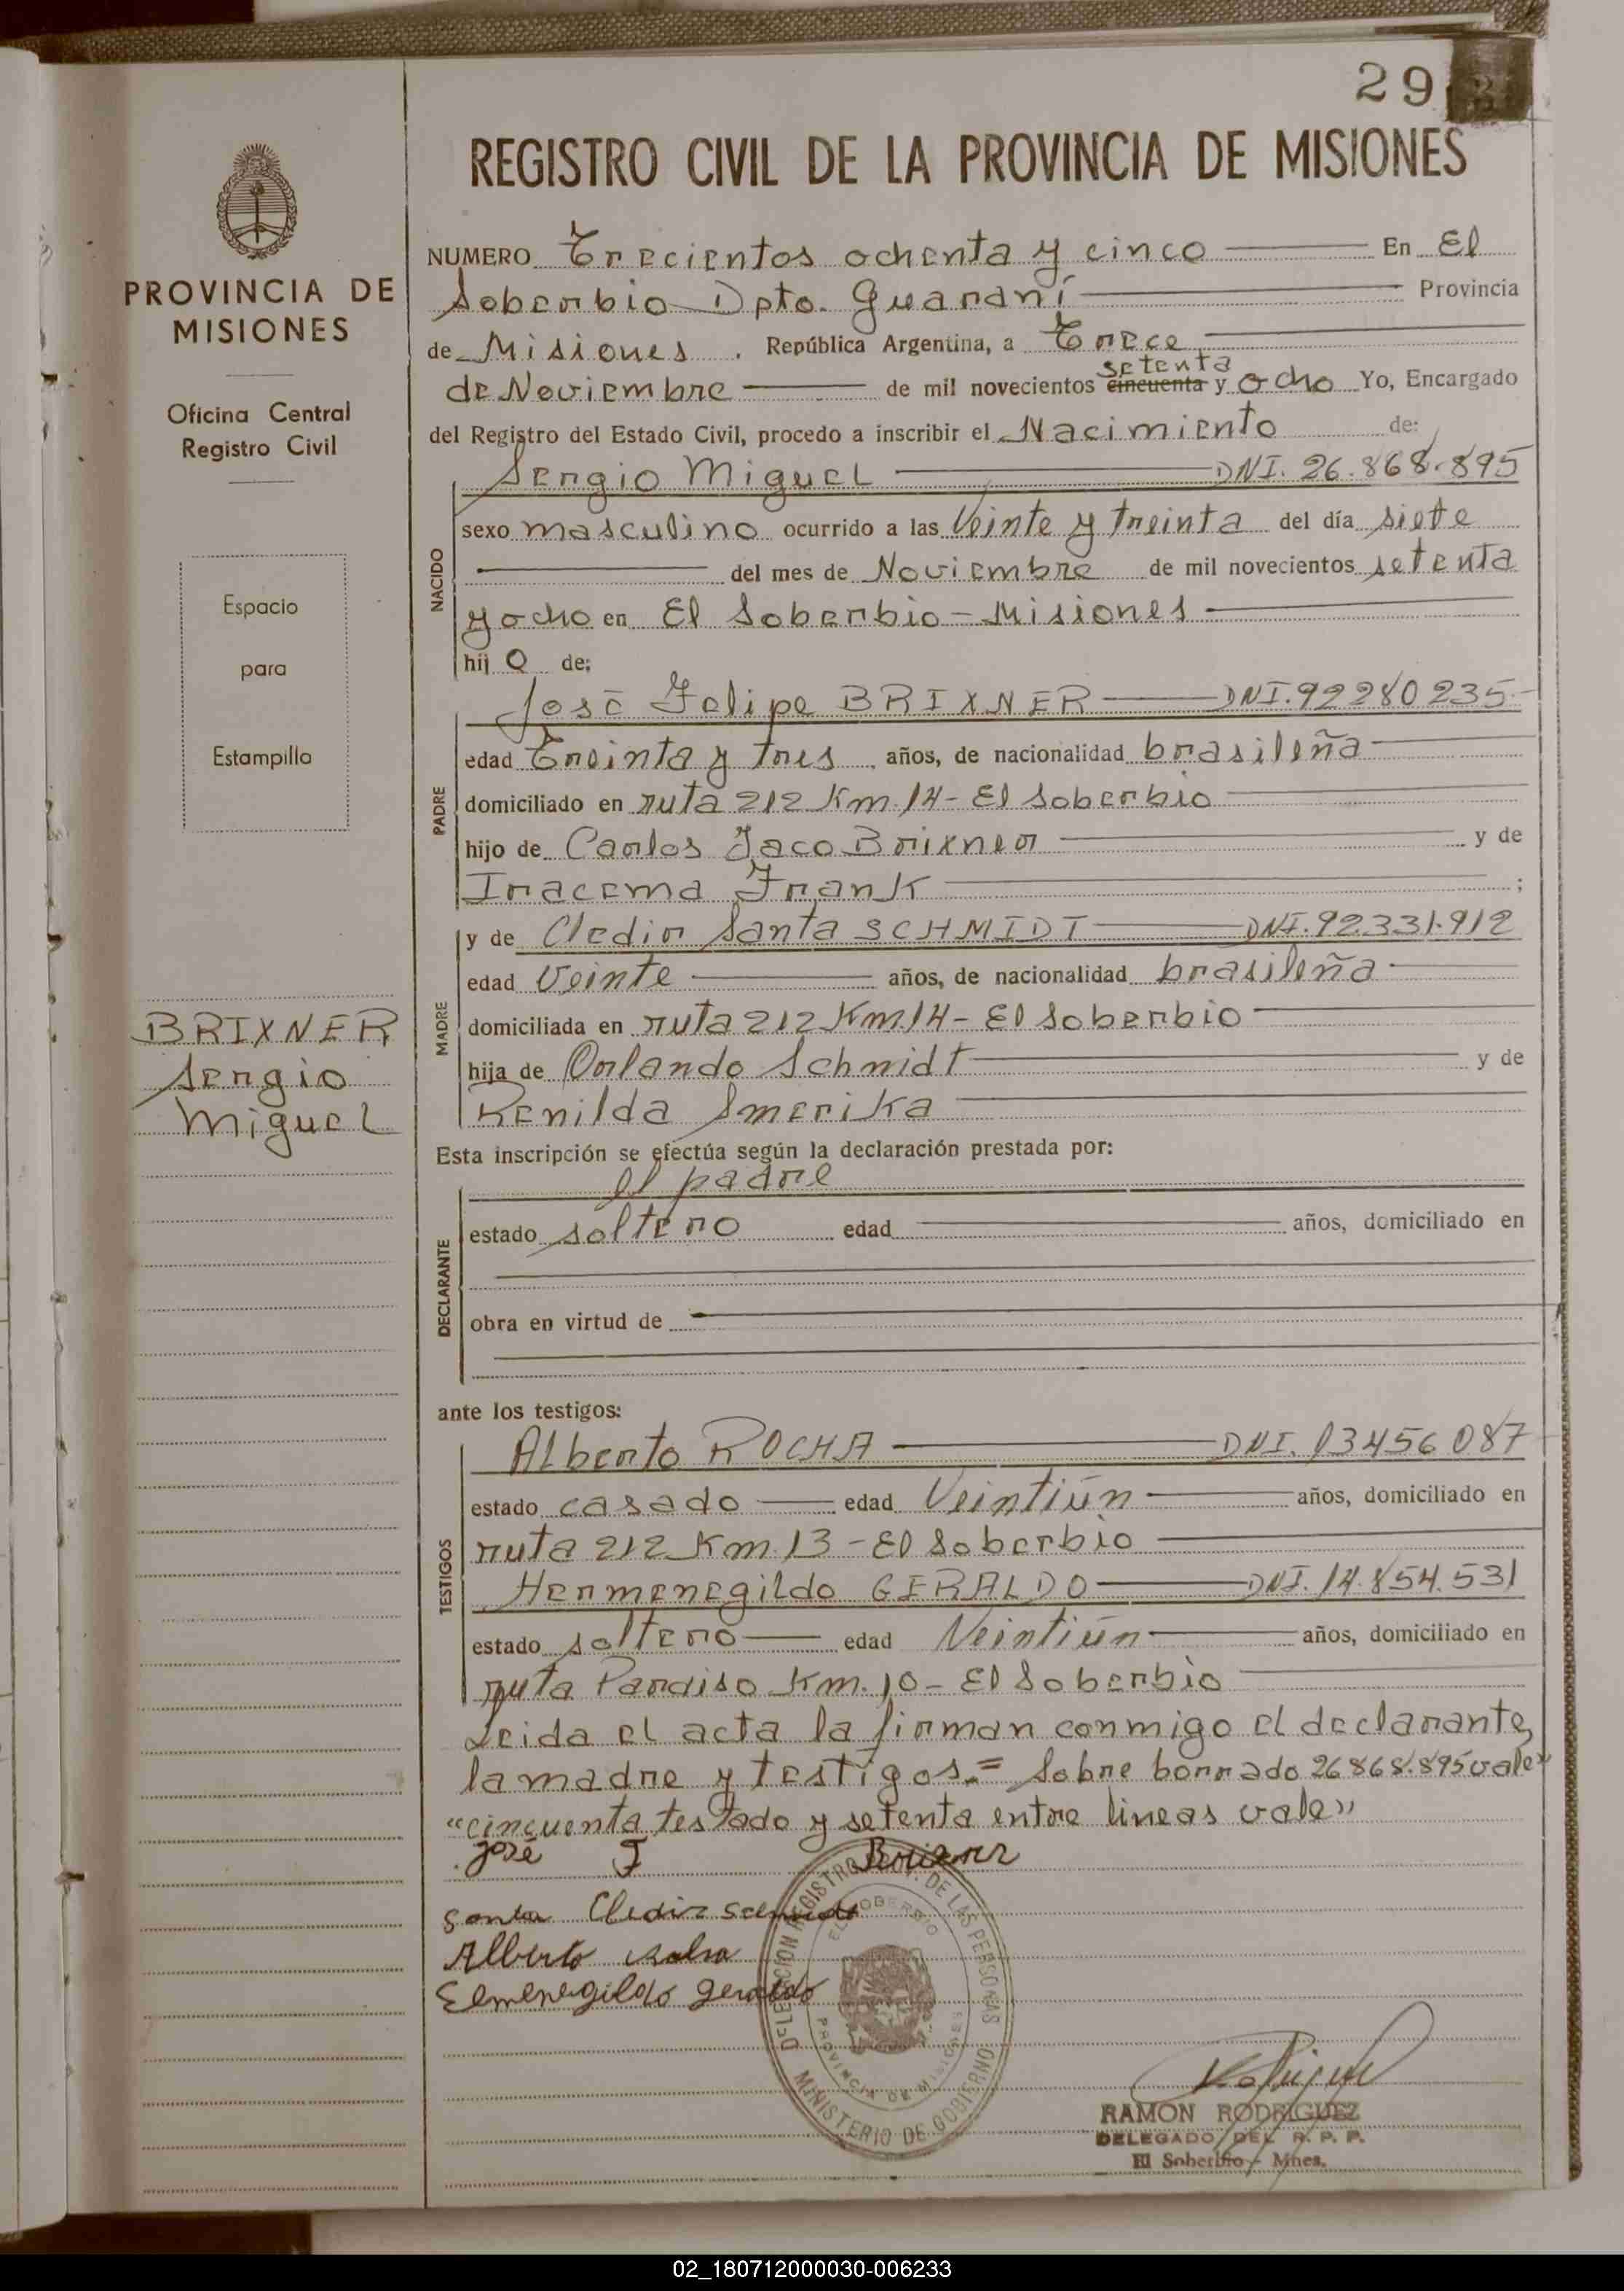 29
REGISTRO CIVIL DE LA PROVINCIA DE MISIONES
PROVINCIA DE
MISIONES
Oficina Central
Registro Civil
Espacio
para
Estampilla
BRIXNER
Sergio
Miguel
NUMERO Trecientos ochenta y cinco En El
Soberbio Dpto. Guaraní Provincia
de Misiones. República Argentina, a Trece
setenta
de Noviembre de mil novecientos cincuenta y ocho Yo, Encargado
del Registro del Estado Civil, procedo a inscribir el Nacimiento de:
NACIDO
Sergio Miguel DNI. 26.868.895
sexo masculino ocurrido a las Veinte y treinta del día siete
del mes de Noviembre de mil novecientos setenta
y ocho en El Soberbio - Misiones
hij o de:
PADRE
José Felipe BRIXNER DNI. 92280235-
edad Treinta y tres años, de nacionalidad brasileña
domiciliado en ruta 212 Km 14 - El Soberbio
hijo de Carlos Jaco Brixner y de
Iracema Frank ;
MADRE
y de Cledir Santa SCHMIDT DNI. 92.331.912
edad Veinte años, de nacionalidad brasileña
domiciliada en ruta 212 Km 14 - El Soberbio
hija de Orlando Schmidt y de
Renilda Smerika
Esta inscripción se efectúa según la declaración prestada por:
DECLARANTE
el padre
estado soltero edad años, domiciliado en
obra en virtud de
ante los testigos:
TESTIGOS
Alberto ROCHA DNI. 13456087
estado casado edad Veintiún años, domiciliado en
ruta 212 Km. 13 - El Soberbio
Hermenegildo GERALDO DNI. 14.854.531
estado soltero edad Veintiún años, domiciliado en
ruta Paraiso Km. 10 - El Soberbio
Leida el acta la firman conmigo el declarante,
la madre y testigos.= Sobre borrado 26868.895 vale"
"cincuenta testado y setenta entre lineas vale"
José F
Santa Cledir
Alberto
Elmenegildo geraldo
DELEGACION REGISTRO DE LAS PERSONAS
EL SOBERBIO
PROVINCIA DE MISIONES
MINISTERIO DE GOBIERNO
RAMON RODRIGUEZ
DELEGADO DEL R. P. P.
El Soberbio - Mnes.
02_180712000030-006233